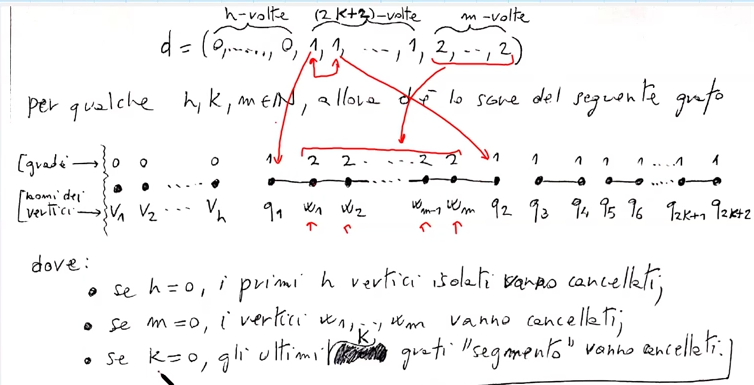 h-volte (2K+2)-volte m-volte
d = (0,....., 0, 1, 1, ..., 1, 2, .., 2)
per qualche h, k, m ∈ N, allora d è lo score del seguente grafo
[gradi → 0 0 0 1 2 2 . . ...2 2 1 1 1 1 1 ....1 1
[nomi dei vertici → V1 V2 ... Vh q1 w1 w2 wm-1 wm q2 q3 q4 q5 q6 q2K+1 q2K+2
dove:
• se h=0, i primi h vertici isolati vanno cancellati;
• se m=0, i vertici w1,..,wm vanno cancellati;
• se K=0, gli ultimi K grafi "segmento" vanno cancellati.